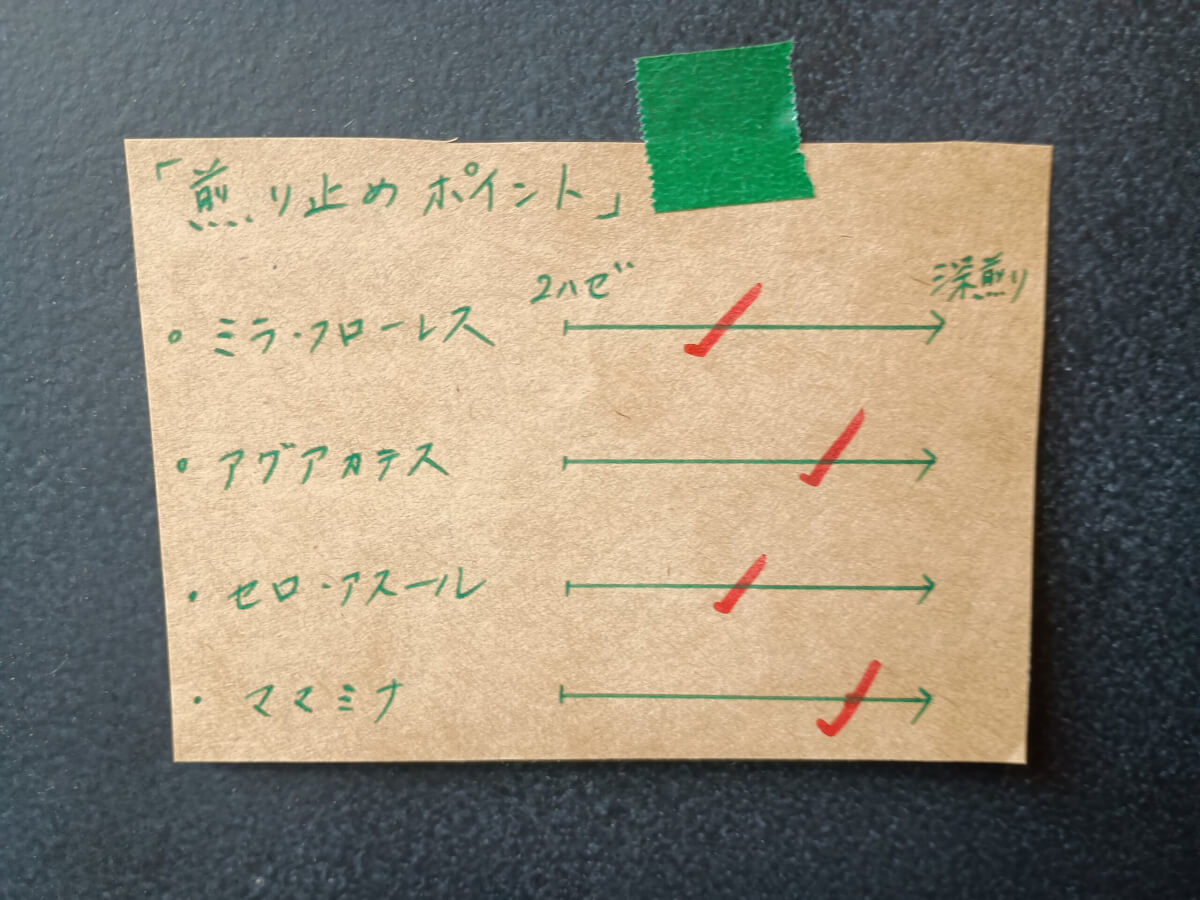 「煎り止めポイント」
2ハゼ 深煎り
ミラ・フローレス
アグアカテス
セロ・アスール
ママミナ